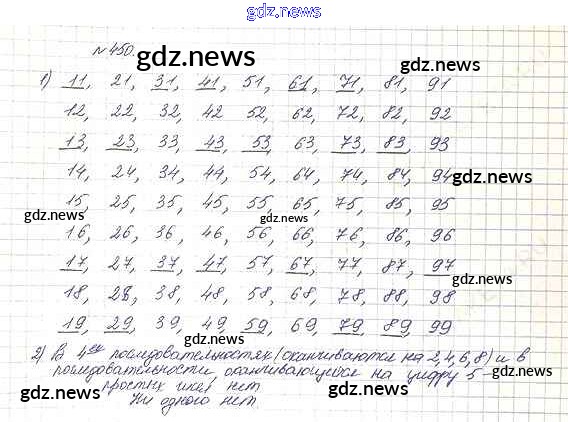 gdz.news
№450.
gdz.news
1) 11, 21, 31, 41, 51, 61, 71, 81, 91
12, 22, 32, 42 52, 62, 72, 82, 92
gdz.news
13, 23, 33, 43, 53, 63, 73, 83, 93
14, 24, 34, 44, 54, 64, 74, 84, 94
gdz.news
15, 25, 35, 45, 55, 65, 75, 85, 95
gdz.news gdz.news
16, 26, 36, 46, 56, 66, 76, 86, 96
17, 27, 37, 47, 57, 67, 77, 87, 97
gdz.news
18, 28, 38, 48, 58, 68, 78, 88, 98
19, 29, 39, 49, 59, 69, 79, 89, 99
2) В 4ех последовательностях (оканчиваются на 2,4,6,8) и в
последовательности оканчивающейся на цифру 5 –
простых чисел нет
gdz.news gdz.news gdz.news
Ни одного нет